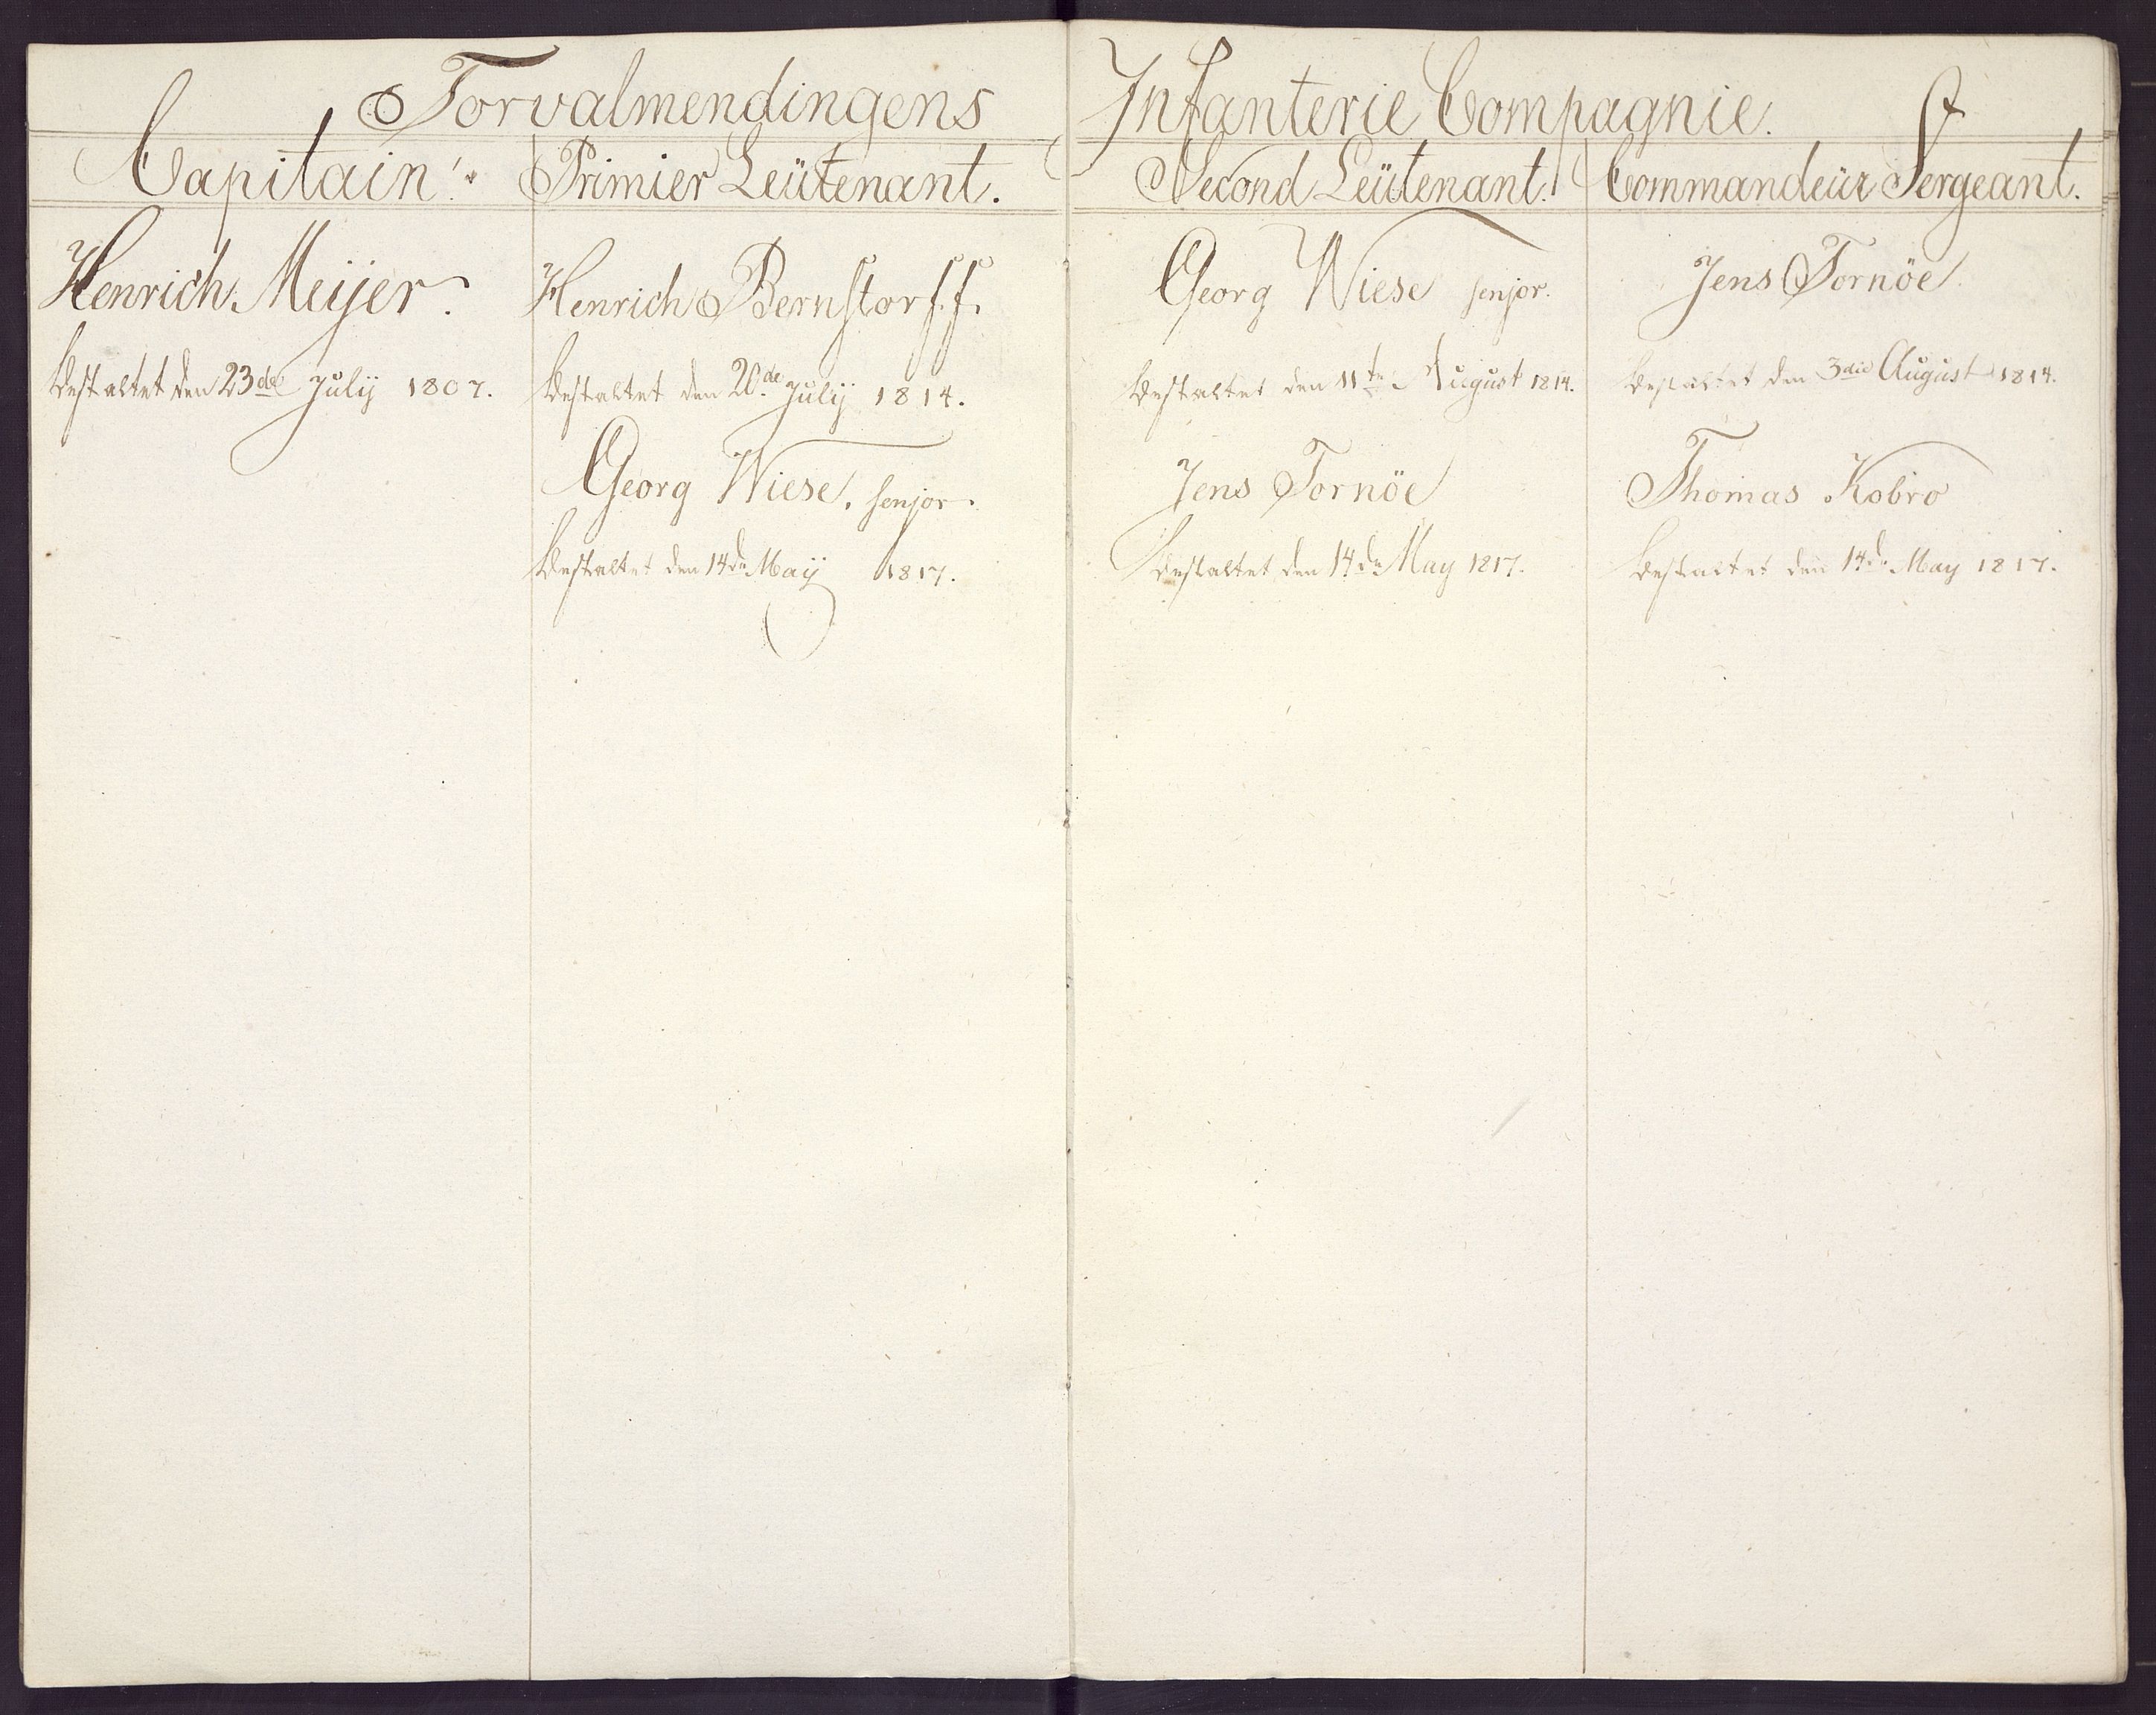 Torvalmendingens Infanterie Compagnie.
Capitain.
Henrich Meijer.
bestaltet den 23de Julij 1807.
Primier Leütenant.
Henrich Bernstorff.
bestaltet den 20de Julij 1814.
Georg Wiese, senjor.
bestaltet den 14de Maij 1817.
Second Leütenant.
Georg Wiese senjor.
bestaltet den 11te August 1814.
Jens Tornöe
bestaltet den 14de May 1817.
Commandeür Sergeant.
Jens Tornöe
bestaltet den 3die August 1814.
Thomas Kobro
bestaltet den 14de May 1817.